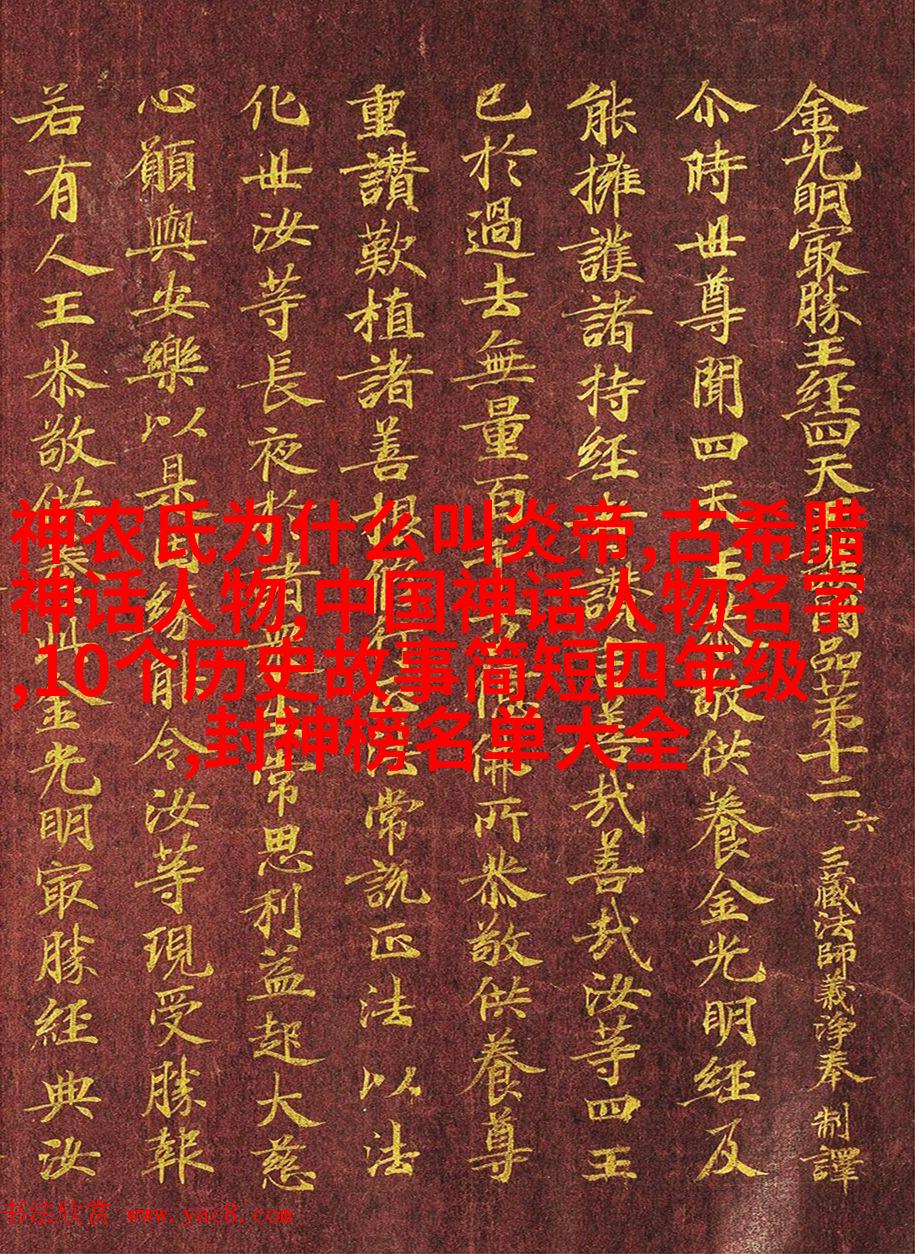 金光明冣勝王経四天王護國品苐十二 六 三藏法師義淨奉 制譯
尒時世尊聞四天王恭敬供養金光明経及
能擁護諸持経者讃言善㦲善㦲汝等四王
已於過去無量百千万億佛所恭敬供養尊
重讃歎植諸善根脩行正法常說正法以法
化世汝等長夜於諸衆生常思利益起大慈
心願與安樂以是因緣能令汝等現受勝報
若有人王恭敬供養此金光明冣勝経典汝
神农氏为什么叫炎帝,古希腊
神话人物,中国神话人物名字
,10个历史故事简短四年级
,封神榜名单大全
书法欣赏 www.yac8.com